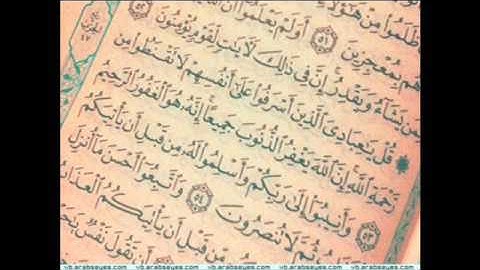 ظَلَمُوا۟ مِنْ هَـٰٓؤُلَآءِ
هُم بِمُعْجِزِينَ ٥١ أَوَلَمْ يَعْلَمُوٓا۟ أَنَّ
يَشَآءُ وَيَقْدِرُ إِنَّ فِى ذَٰلِكَ لَـَٔايَـٰتٍ لِّقَوْمٍ يُؤْمِنُونَ ٥٢
قُلْ يَـٰعِبَادِىَ ٱلَّذِينَ أَسْرَفُوا۟ عَلَىٰٓ أَنفُسِهِمْ لَا تَقْنَطُوا۟ مِن
رَّحْمَةِ ٱللَّهِ إِنَّ ٱللَّهَ يَغْفِرُ ٱلذُّنُوبَ جَمِيعًا إِنَّهُۥ هُوَ ٱلْغَفُورُ ٱلرَّحِيمُ
٥٣ وَأَنِيبُوٓا۟ إِلَىٰ رَبِّكُمْ وَأَسْلِمُوا۟ لَهُۥ مِن قَبْلِ أَن يَأْتِيَكُمُ
ثُمَّ لَا تُنصَرُونَ ٥٤ وَٱتَّبِعُوٓا۟ أَحْسَنَ مَآ أُنزِلَ
مِّن قَبْلِ أَن يَأْتِيَكُمُ ٱلْعَذَابُ
أَن تَقُولَ نَفْسٌ
vb.arabseyes.com vb.arabseyes.com vb.arabseyes.com vb.arabseyes.com